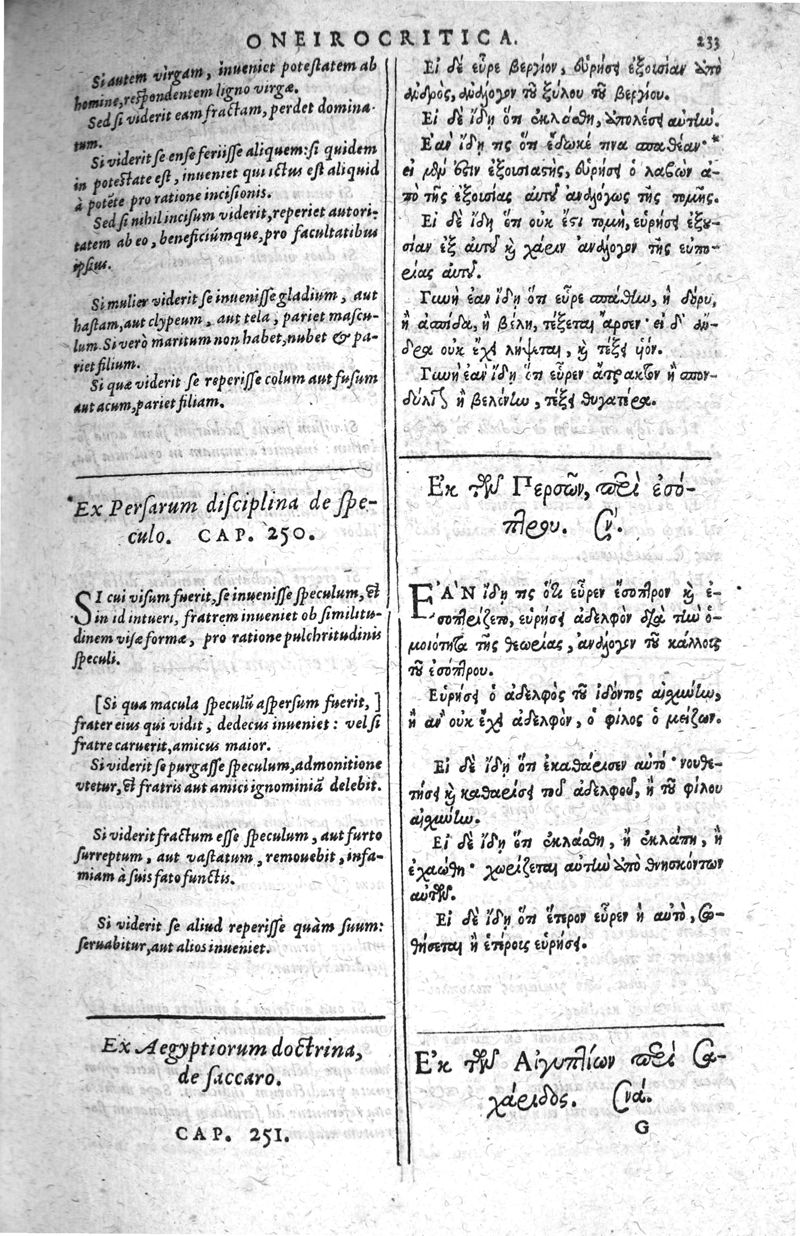 ONEIROCRITICA. 233
Si autem virgam, inueniet potestatem ab
homine, respondentem ligno virgæ.
Sed si viderit eam fractam, perdet domina-
tum.
Si viderit se ense feriisse aliquem: si quidem
in potestate est, inueniet qui ictus est aliquid
à potẽte pro ratione incisionis.
Sed si nihil incisum viderit, reperiet autori-
tatem ab eo, beneficiúmque, pro facultatibus
ipsius.
Si mulier viderit se inuenisse gladium, aut
hastam, aut clypeum, aut tela, pariet mascu-
lum. Si verò maritum non habet, nubet & pa-
riet filium.
Si quæ viderit se reperisse colum aut fusum
aut acum, pariet filiam.
Ex Persarum disciplina de spe-
culo. CAP. 250.
SI cui visum fuerit, se inuenisse speculum, &
in id intueri, fratrem inueniet ob similitu-
dinem visæ formæ, pro ratione pulchritudinis
speculi.
[Si qua macula speculũ aspersum fuerit, ]
frater eius qui vidit, dedecus inueniet: vel si
fratre caruerit, amicus maior.
Si viderit se purgasse speculum, admonitione
vtetur, & fratris aut amici ignominiã delebit.
Si viderit fractum esse speculum, aut furto
surreptum, aut vastatum, remouebit, infa-
miam à suis fato functis.
Si viderit se aliud reperisse quàm suum:
seruabitur, aut alios inueniet.
Ex Aegyptiorum doctrina,
de saccaro.
CAP. 251.
Εἰ δὲ εὗρε βεργίον, εὑρήσει ἐξουσίαν ὑπὸ
ἀνδρὸς, ἀνάλογον τοῦ ξύλου τοῦ βεργίου.
Εἰ δὲ ἴδῃ ὅτι ἐκλάσθη, ἀπολέσει αὐτήν.
Ἐὰν ἴδῃ τις ὅτι ἔδωκέ τινα σπαθέαν·
εἰ μὲν ἔστιν ἐξουσιαστὴς, εὑρήσει ὁ λαβὼν ἀ-
πὸ τῆς ἐξουσίας αὐτοῦ ἀναλόγως τῆς τομῆς.
Εἰ δὲ ἴδῃ ὅτι οὐκ ἔστι τομὴ, εὑρήσει ἐξου-
σίαν ἐξ αὐτοῦ καὶ χάριν ἀνάλογον τῆς εὐπο-
ρίας αὐτοῦ.
Γυνὴ ἐὰν ἴδῃ ὅτι εὗρε σπάθην, ἢ δόρυ,
ἢ ἀσπίδα, ἢ βέλη, τέξεται ἄρσεν· εἰ δ' ἄν-
δρα οὐκ ἔχει λήψεται, καὶ τέξει υἱόν.
Γυνὴ ἐὰν ἴδῃ ὅτι εὗρεν ἄτρακτον ἢ σπον-
δύλιον ἢ βελόνην, τέξει θυγατέρα.
Ἐκ τῶν Περσῶν, περὶ ἐσό-
πτρου. σν΄.
ΕΑΝ ἴδῃ τις ὅτι εὗρεν ἔσοπτρον καὶ ἐ-
σοπτρίζετο, εὑρήσει ἀδελφὸν διὰ τὴν ὁ-
μοιότητα τῆς θεωρίας, ἀνάλογον τοῦ κάλλους
τοῦ ἐσόπτρου.
Εὑρήσει ὁ ἀδελφὸς τοῦ ἰδόντος αἰσχύνην,
ἢ ἂν οὐκ ἔχει ἀδελφὸν, ὁ φίλος ὁ μείζων.
Εἰ δὲ ἴδῃ ὅτι ἐκαθάρισεν αὐτὸ· νουθε-
τήσει καὶ καθαρίσει τοῦ ἀδελφοῦ, ἢ τοῦ φίλου
αἰσχύνην.
Εἰ δὲ ἴδῃ ὅτι ἐκλάσθη, ἢ ἐκλάπη, ἢ
ἐχαώθη· χωρίζεται αὐτὴν ἀπὸ θνησκόντων
αὐτῶν.
Εἰ δὲ ἴδῃ ὅτι ἕτερον εὗρεν ἢ αὐτὸ, σω-
θήσεται ἢ ἑτέροις εὑρήσει.
Ἐκ τῶν Αἰγυπτίων περὶ σα-
χάριδος. σνά.
G